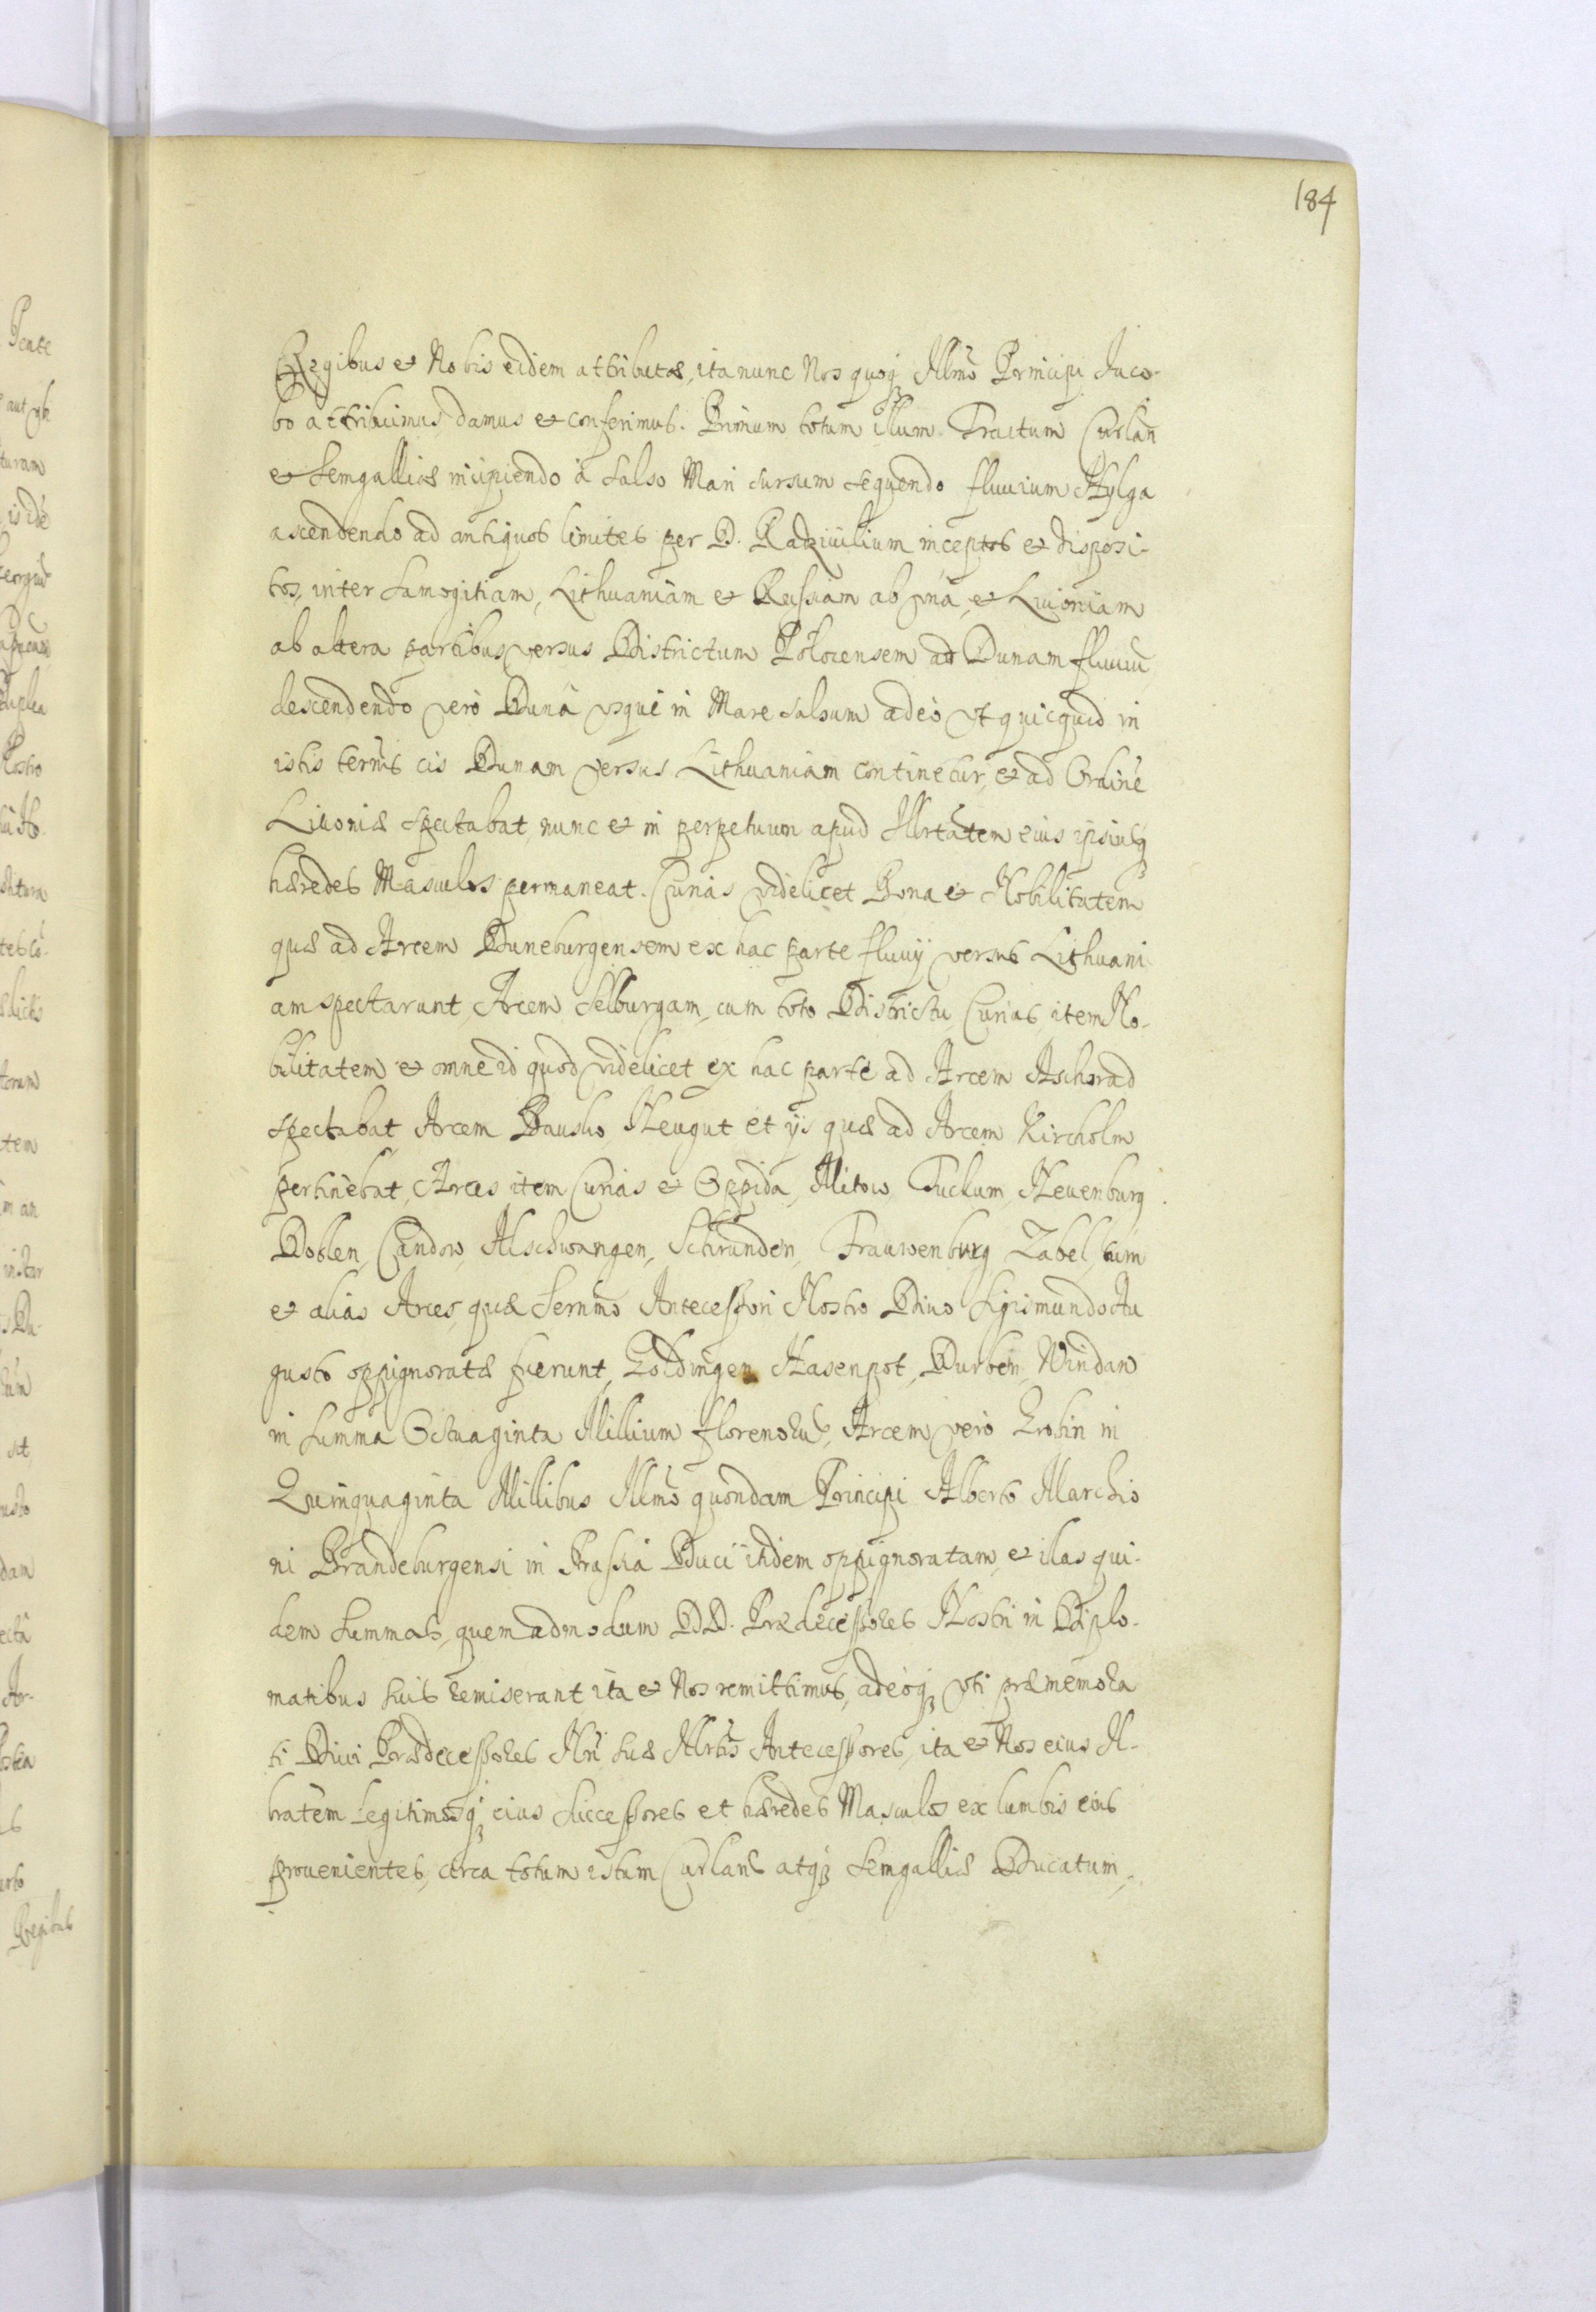 184
Regibus et Nobis eidem attributas, ita nunc Nos quoq Illmo Principi Jaco-
bo attribuimus, damus et conferimus. Primum totum illum Tractum Curlan
et Semgalliæ incipiendo à salso Mari sursum sequendo fluvium Hylga
ascendendo ad antiquos limites per D. Radziuilium inceptos et disposi-
tos, inter Samogitiam, Lithuaniam et Russiam ab vna, et Liuoniam
ab altera partibus versus Districtum Polocensem ad Dunam fluuiū
descendendo verò Duna vsque in Mare salsum adeò vt quicquid in
istis terris cis Dunam versus Lithuaniam continetur, et ad Ordinē
Liuoniæ spectabat, nunc et in perpetuum apud Illrtatem eius ipsiusq
hæredes Masculos permaneat. Curias videlicet Bona et Nobilitatem
quæ ad Arcem Duneburgensem ex hac parte fluuij versus Lithuani
am spectarunt, Arcem Selburgam, cum toto Districtu, Curias, item No-
bilitatem et omne id quod videlicet ex hac parte ad Arcem Ascherad
spectabat Arcem Bausko, Neugut et ijs quæ ad Arcem Kircholm
pertinebat, Arces item Curias et Oppida, Mitow, Tuckum, Neuenburg
Doblen, Candow, Alschwangen, Schrunden, Frauwenburg Zabel, tum
et alias Arces, quæ Sernmo Antecessori Nostro Diuo Sigismundo Au
gusto oppignoratæ fuerunt, Goldingen Hasenpot, Durben, Windaw
in summa Octuaginta Millium florenoru, Arcem verò Grobin in
Quinquaginta Millibus Illmo quondam Principi Alberto Marchio
ni Brandeburgensi in Prussia Duci itidem oppignoratam, et illas qui-
dem summas, quemadmodum DD. Prædecessores Nostri in Diplo-
matibus suis remiserant ita et Nos remittimus, adeoq vti præmemora
ti Diui Prædecessores Nri suæ Illrtis Antecessores, ita et Nos eius Il-
tratem legitimosq eius Successores et hæredes Masculos ex lumbis eius
prouenientes, circa totum istum Curlanæ atq Semgalliæ Ducatum,